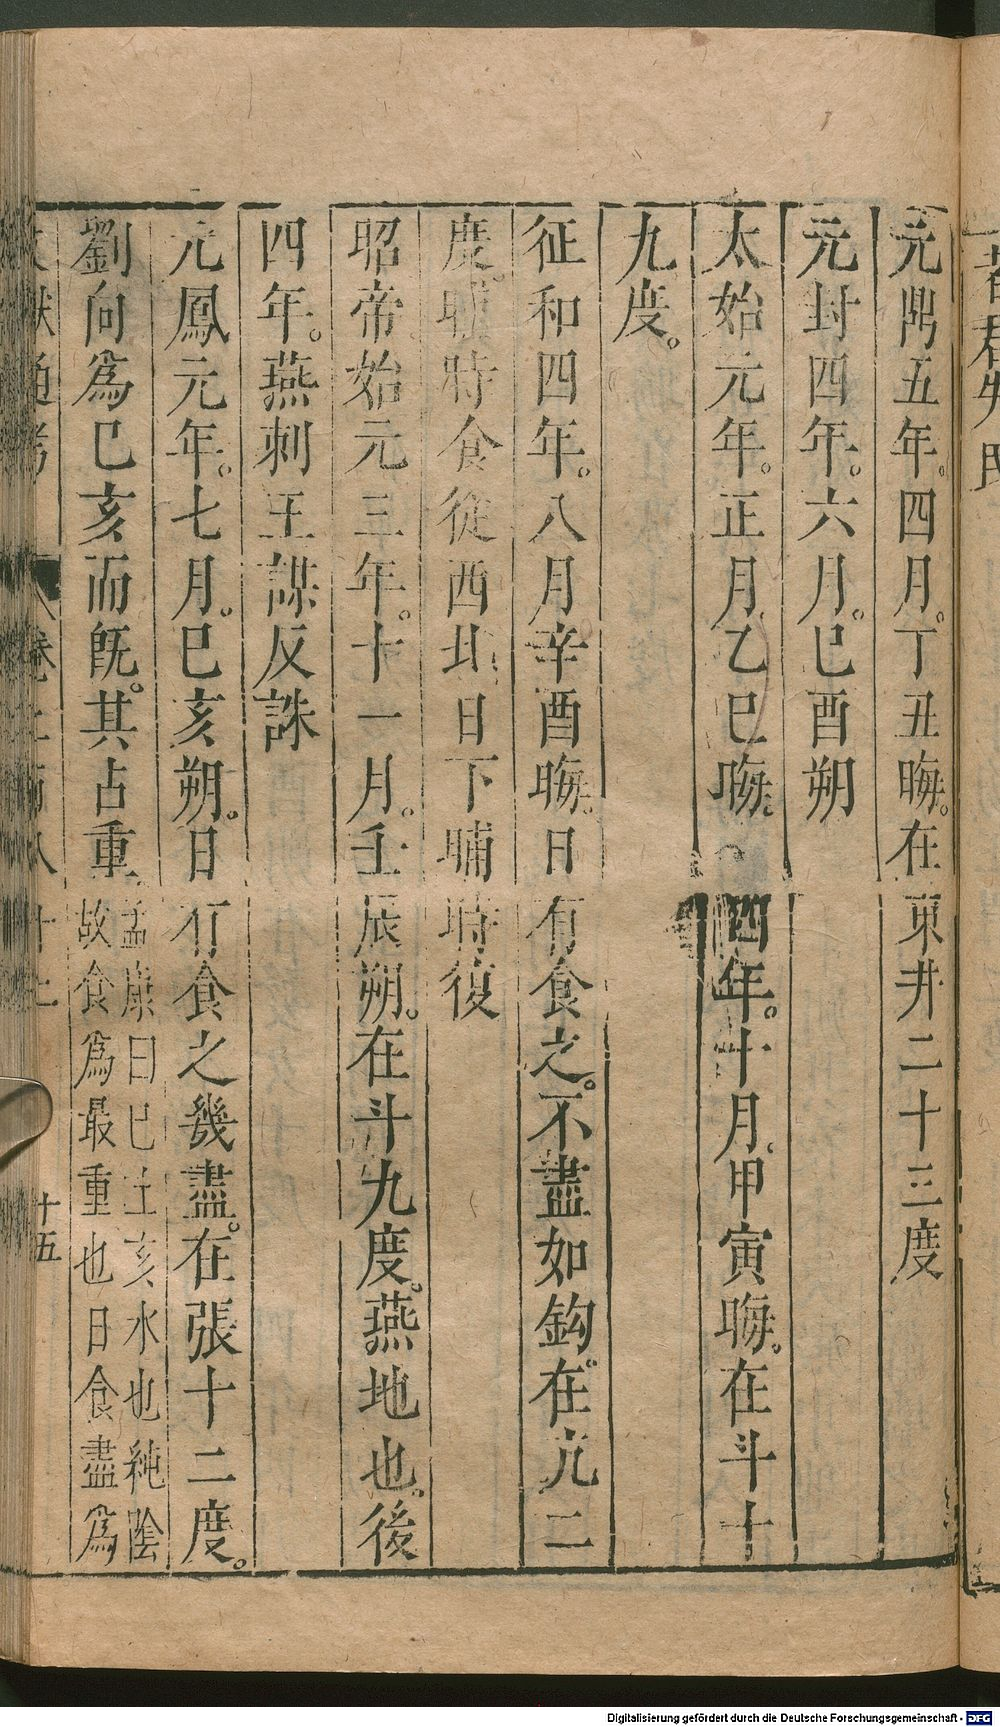 元鼎五年。四月。丁丑晦。在東井二十三度
元封四年。六月。已酉朔
太始元年。正月。乙巳晦。四年。十月。甲寅晦。在斗十
九度。
征和四年。八月辛酉晦。日有食之。不盡如鈎。在亢二
度。晡時食從西北日下晡時復
昭帝始元三年。十一月。壬辰朔。在斗九度。燕地也。後
四年。燕刺王謀反誅
元鳳元年。七月。巳亥朔。日有食之幾盡。在張十二度。
劉向爲巳亥而旣。其占重。
孟康曰巳土亥水也純陰
故食爲最重也日食盡爲
十五
Digitalisierung gefördert durch die Deutsche Forschungsgemeinschaft - DFG